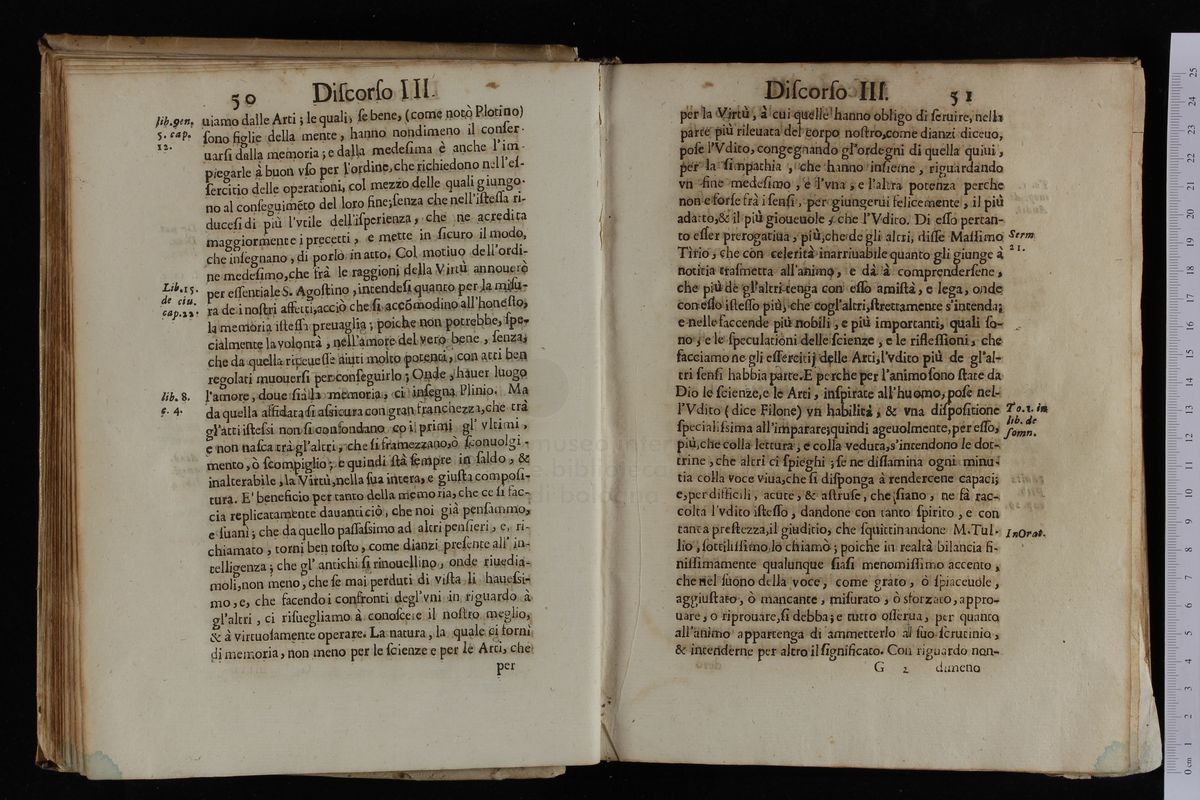 50 Diſcorſo III.
lib.gen.
5. cap.
12.
uiamo dalle Arti; le quali, ſe bene, (come notò Plotino)
ſono figlie della mente, hanno nondimeno il conſer-
uarſi dalla memoria; e dalla medeſima è anche l'im-
piegarle à buon vſo per l'ordine, che richiedono nell'eſ-
ſercitio delle operationi, col mezzo delle quali giungo-
no al conſeguimẽto del loro fine; ſenza che nell'iſteſſa ri-
duceſi di più l'vtile dell'iſperienza, che ne acredita
maggiormente i precetti, e mette in ſicuro il modo,
che inſegnano, di porlo in atto. Col motiuo dell'ordi-
ne medeſimo, che frà le raggioni della Virtù annouerò
Lib.15.
de ciu.
cap.22.
per eſſentiale S. Agoſtino, intendeſi quanto per la miſu-
ra de i noſtri affetti, acciò che ſi accõmodino all'honeſto,
la memoria iſteſſa preuaglia; poiche non potrebbe, ſpe-
cialmente la volontà, nell'amore del vero bene, ſenza,
che da quella riceueſſe aiuti molto potenti, con atti ben
regolati muouerſi per conſeguirlo; Onde, hauer luogo
lib. 8.
c. 4.
l'amore, doue ſia la memoria, ci inſegna Plinio. Ma
da quella affidata ſi aſsicura con gran franchezza, che trà
gl'atti iſteſsi non ſi confondano co i primi gl' vltimi,
e non naſca trà gl'altri, che ſi framezzano, ò ſconuolgi-
mento, ò ſcompiglio; e quindi ſtà ſempre in ſaldo, &
inalterabile, la Virtù, nella ſua intera, e giuſta compoſi-
tura. E' beneficio per tanto della memoria, che ce ſi fac-
cia replicatamente dauanti ciò, che noi già penſammo,
e ſuanì; che da quello paſſaſsimo ad altri penſieri, e, ri-
chiamato, torni ben toſto, come dianzi preſente all' in-
telligenza; che gl' antichi ſi rinouellino, onde riuedia-
moli, non meno, che ſe mai perduti di viſta li haueſsi-
mo, e, che facendo i confronti degl'vni in riguardo à
gl'altri, ci riſuegliamo à conoſcere il noſtro meglio,
& à virtuoſamente operare. La natura, la quale ci fornì
di memoria, non meno per le ſcienze e per le Arti, che
per
Diſcorſo III. 51
per la Virtù, à cui quelle hanno obligo di ſeruire, nella
parte più rileuata del corpo noſtro, come dianzi diceuo,
poſe l'Vdito, congegnando gl'ordegni di quella quiui,
per la ſimpathia, che hanno inſieme, riguardando
vn fine medeſimo, e l'vna, e l'altra potenza perche
non è forſe frà i ſenſi, per giungerui felicemente, il più
adatto, & il più gioueuole, che l'Vdito. Di eſſo pertan-
to eſſer prerogatiua, più, che de gli altri, diſſe Maſſimo
Serm
21.
Tirio, che con celerità inarriuabile quanto gli giunge à
notitia traſmetta all'animo, e dà à comprenderſene,
che più de gl'altri tenga con eſſo amiſtà, e lega, onde
con eſſo iſteſſo più, che cogl'altri, ſtrettamente s'intenda;
e nelle faccende più nobili, e più importanti, quali ſo-
no, e le ſpeculationi delle ſcienze, e le rifleſſioni, che
facciamo ne gli eſſercitij delle Arti, l'vdito più de gl'al-
tri ſenſi habbia parte. E perche per l'animo ſono ſtate da
Dio le ſcienze, e le Arti, inſpirate all'huomo, poſe nel-
To.1. in
lib. de
ſomn.
l'Vdito (dice Filone) vn habilità, & vna diſpoſitione
ſpecialiſsima all'imparare; quindi ageuolmente, per eſſo,
più, che colla lettura, e colla veduta, s'intendono le dot-
trine, che altri ci ſpieghi; ſe ne diſſamina ogni minu-
tia colla voce viua, che ſi diſponga à rendercene capaci;
e, per difficili, acute, & aſtruſe, che ſiano, ne fà rac-
colta l'vdito iſteſſo, dandone con tanto ſpirito, e con
tanta preſtezza, il giuditio, che ſquittinandone M. Tul-
In Orat.
lio, ſottiliſſimo lo chiamò; poiche in realtà bilancia fi-
niſſimamente qualunque ſiaſi menomiſſimo accento,
che nel ſuono della voce, come grato, ò ſpiaceuole,
aggiuſtato, ò mancante, miſurato, ò sforzato, appro-
uare, o riprouare, ſi debba; e tutto oſſerua, per quanto
all'animo appartenga di ammetterlo al ſuo ſcrutinio,
& intenderne per altro il ſignificato. Con riguardo non-
G 2 dimeno